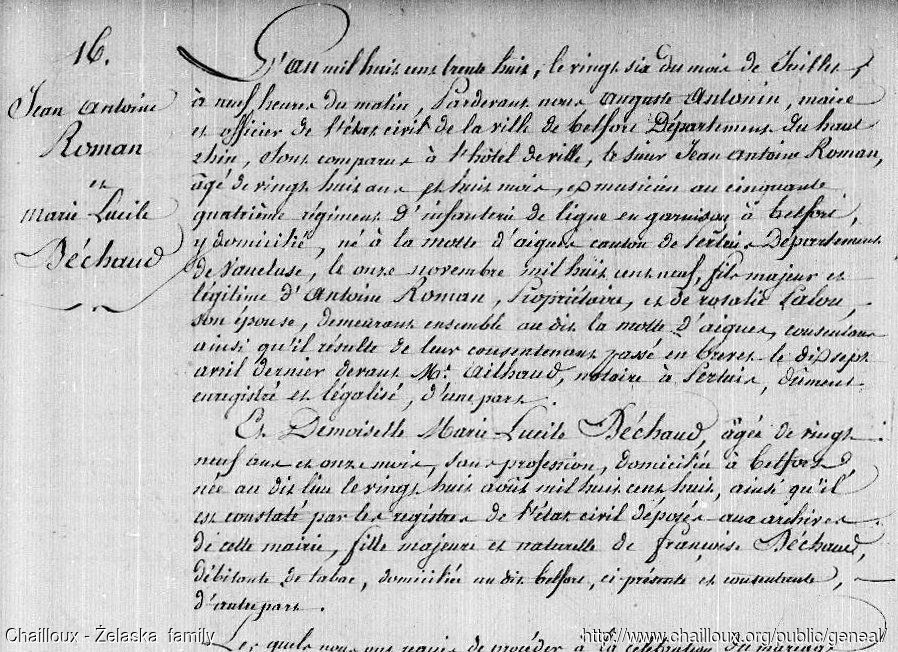 16.
Jean Antoine
Roman
et
Marie Lucile
Déchaud
L'an mil huit cent trente huit, le vingt six du mois de Juillet,
à neuf heures du matin, Pardevant nous Auguste Antonin, maire
et officier de l'état civil de la ville de Belfort Département du haut
rhin, sont comparus à l'hôtel de ville, le sieur Jean Antoine Roman,
âgé de vingt huit ans et huit mois, ex musicien au cinquante
quatrième régiment d'infanterie de ligne en garnison à Belfort,
y domicilié, né à la motte d'aigues canton de Pertuis Département
de Vaucluse, le onze novembre mil huit cent neuf, fils majeur et
légitime d'Antoine Roman, Propriétaire, et de rosalie Lalou,
son épouse, demeurant ensemble au dit la motte d'aigues, consentans
ainsi qu'il résulte de leur consentement passé en brevet le dix sept
avril dernier devant Me. Ailhaud, notaire à Pertuis, dûment
enregistré et légalisé, d'une part.
Et Demoiselle Marie Lucile Déchaud, âgée de vingt
neuf ans et onze mois, sans profession, domiciliée à Belfort,
née au dit lieu le vingt huit août mil huit cent huit, ainsi qu'il
est constaté par les registres de l'état civil déposés aux archives
de cette mairie, fille majeure et naturelle de françoise Déchaud,
débitante de tabac, domiciliée au dit Belfort, ci présente et consentante,
d'autre part.
Les quels nous ont requis de procéder à la célébration du mariage
Chailloux - Żelaska family
http://www.chailloux.org/public/geneal/